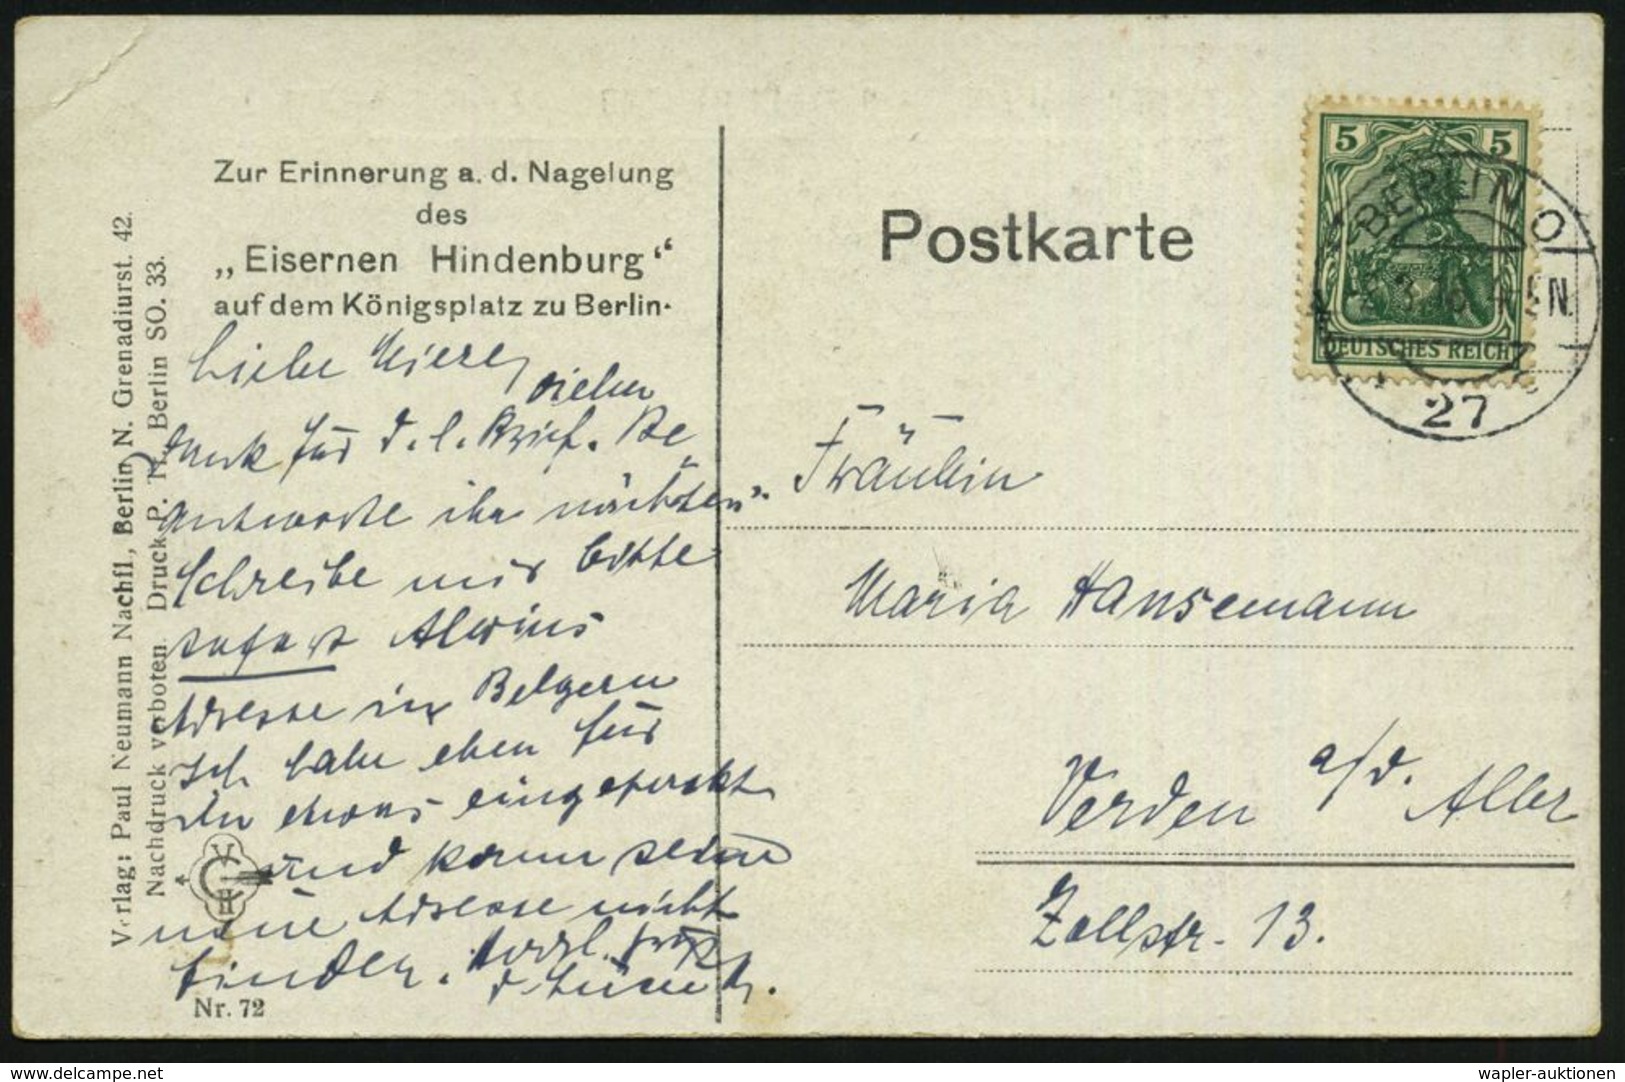 Zur Erinnerung a. d. Nagelung
des
„Eisernen Hindenburg“
auf dem Königsplatz zu Berlin.
Liebe
vielen
Dank für d. l. Brief. Be„
antworte ihn nächsten„
Schreibe mir bitte
sofort Alwins
Adresse in Belgern
Ich habe eben für
ihn etwas eingepackt
und kann seine
neue Adresse nicht
finden. Herzl. Grß
d.
Nr. 72
Verlag: Paul Neumann Nachfl., Berlin N. Grenadiurst. 42.
Nachdruck verboten. Druck P. H., Berlin SO. 33.
Postkarte
5 5
DEUTSCHES REICH
BERLIN O
3. 16. 4-5N.
27
Fräulein
Maria Hansemann
Verden a/d. Aller
Zollstr. 13.
delcampe.net
wapler-auktionen